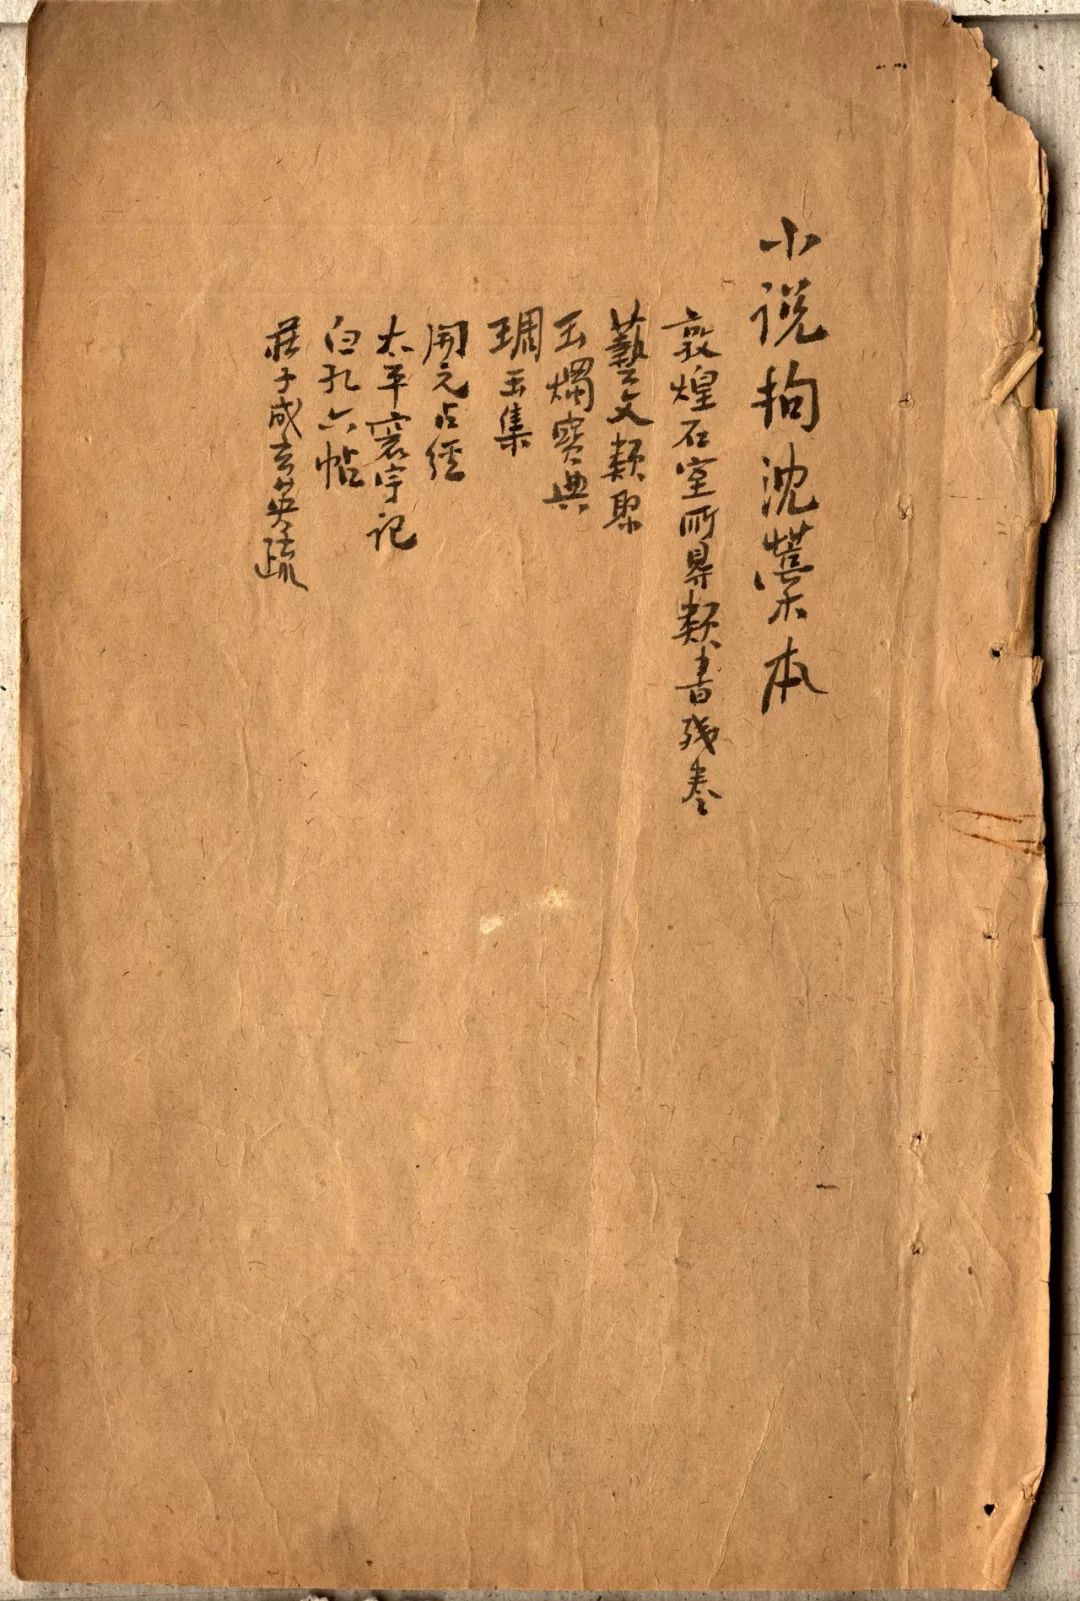 小说拘沈藁本
敦煌石室所㝵類書残卷
藝文類聚
玉燭寳典
琱玉集
開元占經
太平寰宇记
白孔六帖
莊子成玄英疏